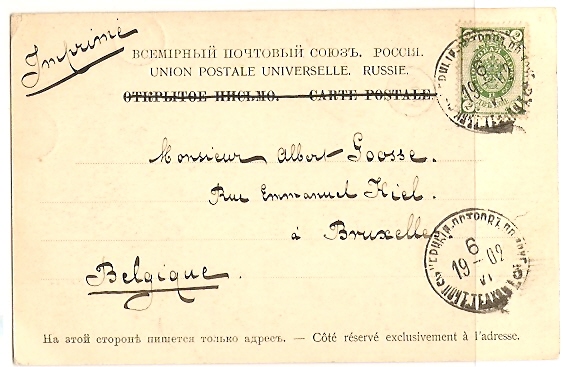 Imprimé
ВСЕМІРНЫЙ ПОЧТОВЫЙ СОЮЗЪ. РОССІЯ.
UNION POSTALE UNIVERSELLE. RUSSIE.
ОТКРЫТОЕ ПИСЬМО. — CARTE POSTALE.
Monsieur Albert Goosse.
Rue Emmanuel Hiel.
à Bruxelles
Belgique.
6
19 02
VI
На этой сторонѣ пишется только адресъ. — Côté réservé exclusivement à l'adresse.